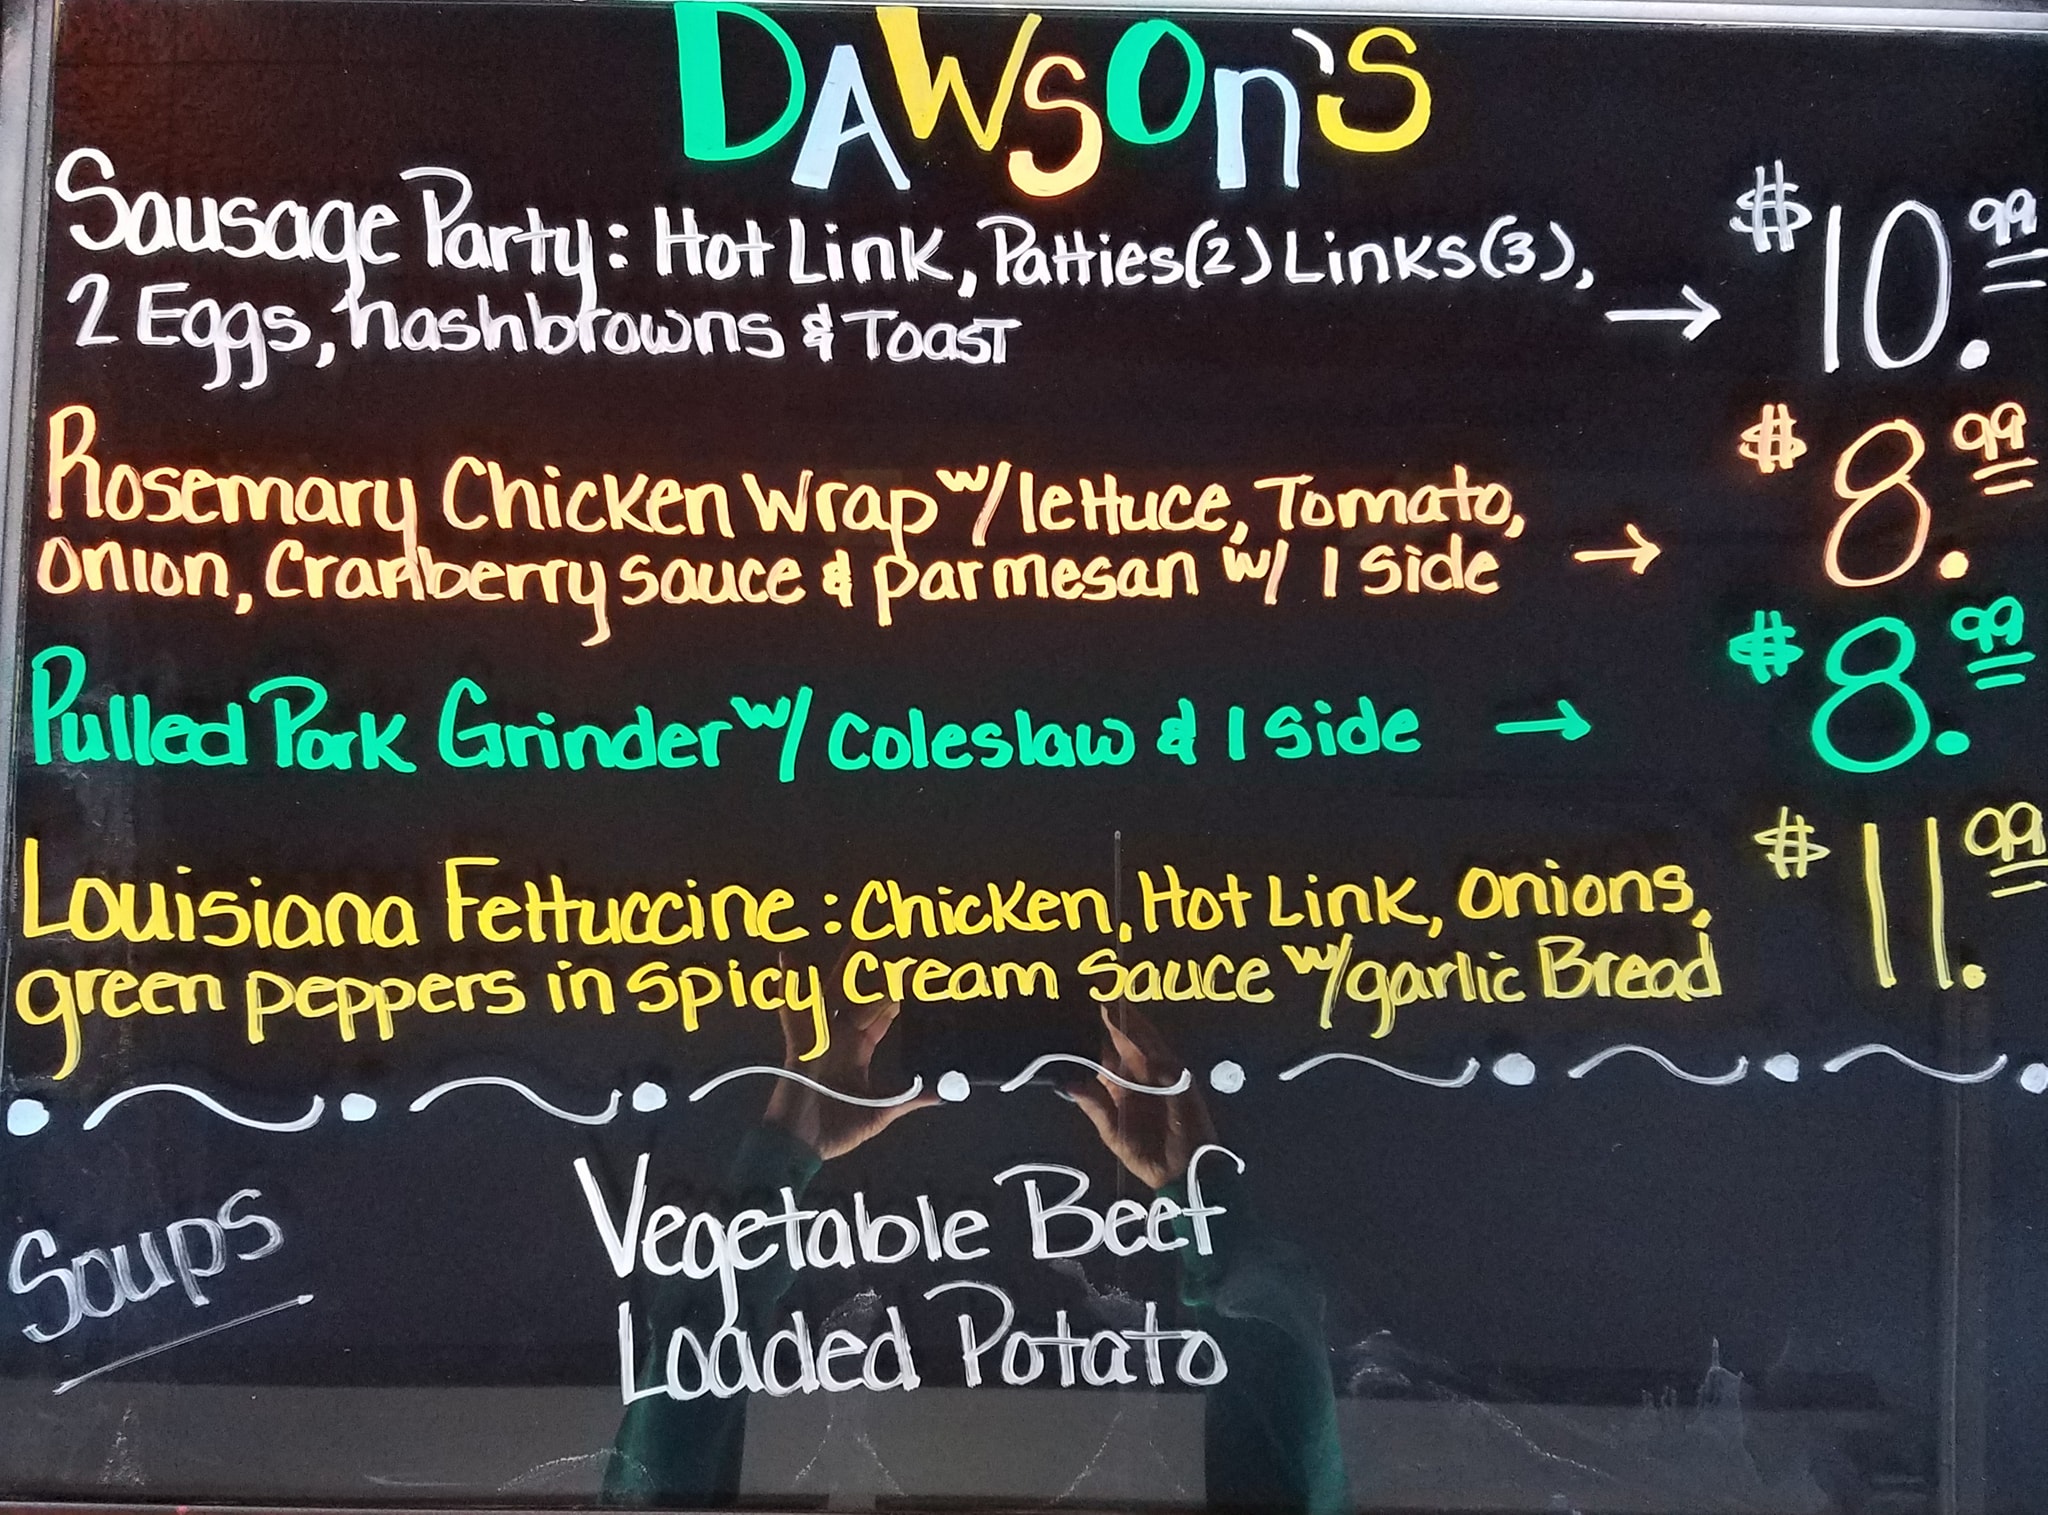 DAWSOn'S
Sausage Party: Hot Link, Patties(2) Links(3), $10.99
2 Eggs, hashbrowns & Toast →
Rosemary Chicken Wrap w/ lettuce, Tomato, $8.99
onion, Cranberry sauce & parmesan w/ 1 side →
Pulled Pork Grinder w/ coleslaw & 1 side → $8.99
Louisiana Fettuccine: Chicken, Hot Link, onions, $11.99
green peppers in spicy cream Sauce w/garlic Bread
Soups Vegetable Beef
Loaded Potato